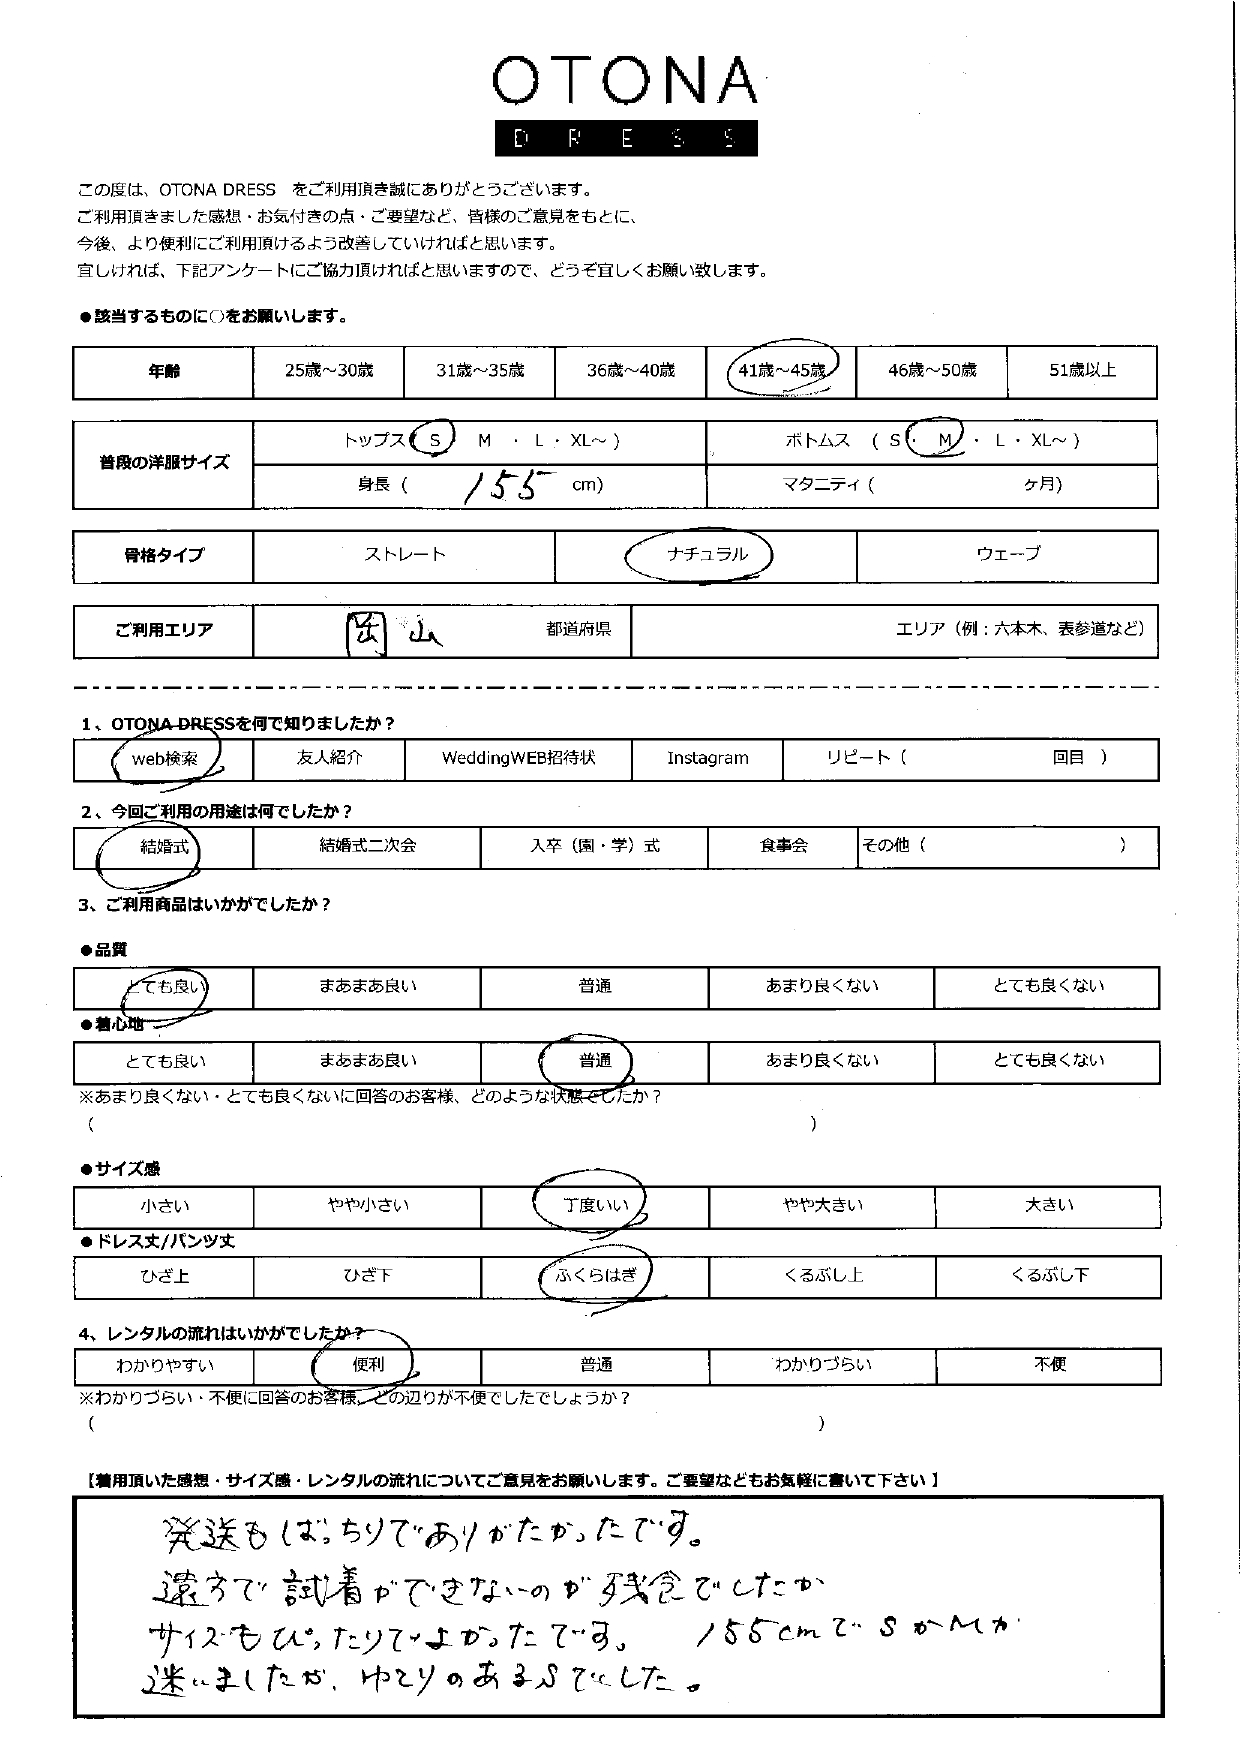 OTONA
DRESS
この度は、OTONA DRESS　をご利用頂き誠にありがとうございます。
ご利用頂きました感想・お気付きの点・ご要望など、皆様のご意見をもとに、
今後、より便利にご利用頂けるよう改善していければと思います。
宜しければ、下記アンケートにご協力頂ければと思いますので、どうぞ宜しくお願い致します。
●該当するものに○をお願いします。
年齢 25歳～30歳 31歳～35歳 36歳～40歳 41歳～45歳 46歳～50歳 51歳以上
普段の洋服サイズ トップス ( S M ・ L ・ XL～ ) ボトムス ( S ・ M ・ L ・ XL～ )
身長 ( 155 cm) マタニティ ( ヶ月)
骨格タイプ ストレート ナチュラル ウェーブ
ご利用エリア 岡山 都道府県 エリア（例：六本木、表参道など）
1、OTONA DRESSを何で知りましたか？
web検索 友人紹介 WeddingWEB招待状 Instagram リピート ( 回目 )
2、今回ご利用の用途は何でしたか？
結婚式 結婚式二次会 入卒（園・学）式 食事会 その他 ( )
3、ご利用商品はいかがでしたか？
●品質
とても良い まあまあ良い 普通 あまり良くない とても良くない
●着心地
とても良い まあまあ良い 普通 あまり良くない とても良くない
※あまり良くない・とても良くないに回答のお客様、どのような状態でしたか？
( )
●サイズ感
小さい やや小さい 丁度いい やや大きい 大きい
●ドレス丈/パンツ丈
ひざ上 ひざ下 ふくらはぎ くるぶし上 くるぶし下
4、レンタルの流れはいかがでしたか？
わかりやすい 便利 普通 わかりづらい 不便
※わかりづらい・不便に回答のお客様、どの辺りが不便でしたでしょうか？
( )
【着用頂いた感想・サイズ感・レンタルの流れについてご意見をお願いします。ご要望などもお気軽に書いて下さい】
発送もばっちりでありがたかったです。
遠方で試着ができないのが残念でしたが
サイズもぴったりでよかったです。 155cmでSかMか
迷いましたが、ゆとりのあるSでした。